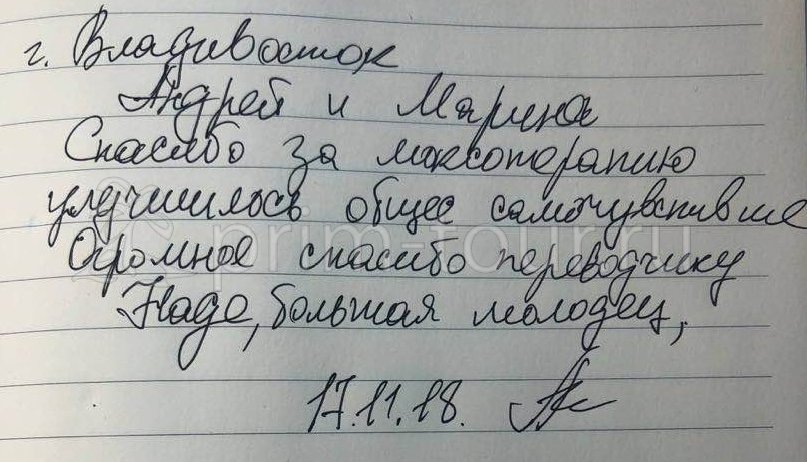 г. Владивосток
Андрей и Марина
Спасибо за моксотерапию
улучшилось общее самочувствие
Огромное спасибо переводчику
Наде, большая молодец,
17.11.18.
prim-tour.ru